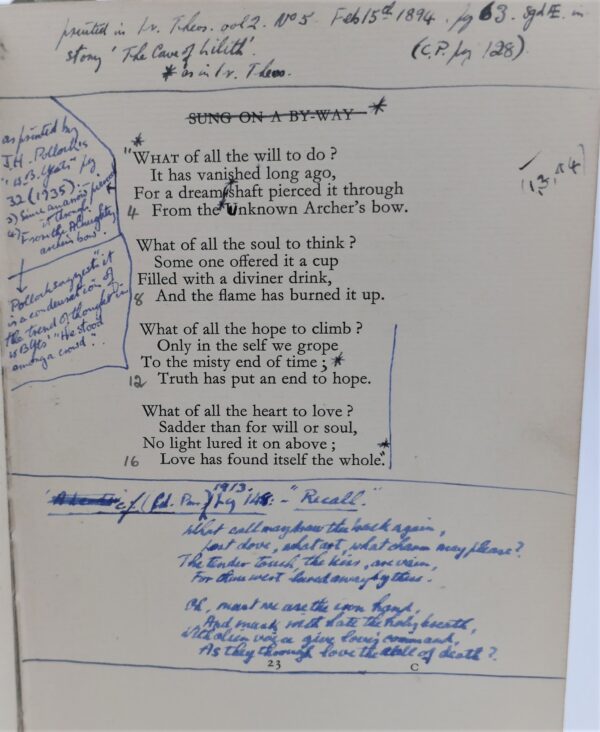 printed in Ir. Theos. vol 2. No 5. Feb 15th 1894. pg 63. Sgd Æ. in
story 'The Cave of Lilith'. (C.P. pg 128).
* as in Ir. Theos.
SUNG ON A BY-WAY *
as printed by
J.H. Pollock's
"W.B. Yeats" pg
32 (1935):-
3) Since an arrow pierced
4) - it through
From the Almighty
archer's bow.
Pollock suggests "it
is a condensation of
the trend of thought in
W.B.Yts' "He stood
among a crowd".
*
"WHAT of all the will to do ?
It has vanished long ago,
For a dream-shaft pierced it through
4 From the Unknown Archer's bow.
What of all the soul to think ?
Some one offered it a cup
Filled with a diviner drink,
8 And the flame has burned it up.
What of all the hope to climb ?
Only in the self we grope
To the misty end of time ; *
12 Truth has put an end to hope.
What of all the heart to love ?
Sadder than for will or soul,
No light lured it on above ; *
16 Love has found itself the whole."
cf. 1913. pg 148. - "Recall."
What call may draw thee back again,
Lost dove, what art, what charm may please?
The tender touch, the kiss, are vain,
For thou wert lured away by these.
Oh, must we use the iron hand,
And mask with hate the holy breath,
With alien voice give love's command,
As they through love the call of death?
23 C